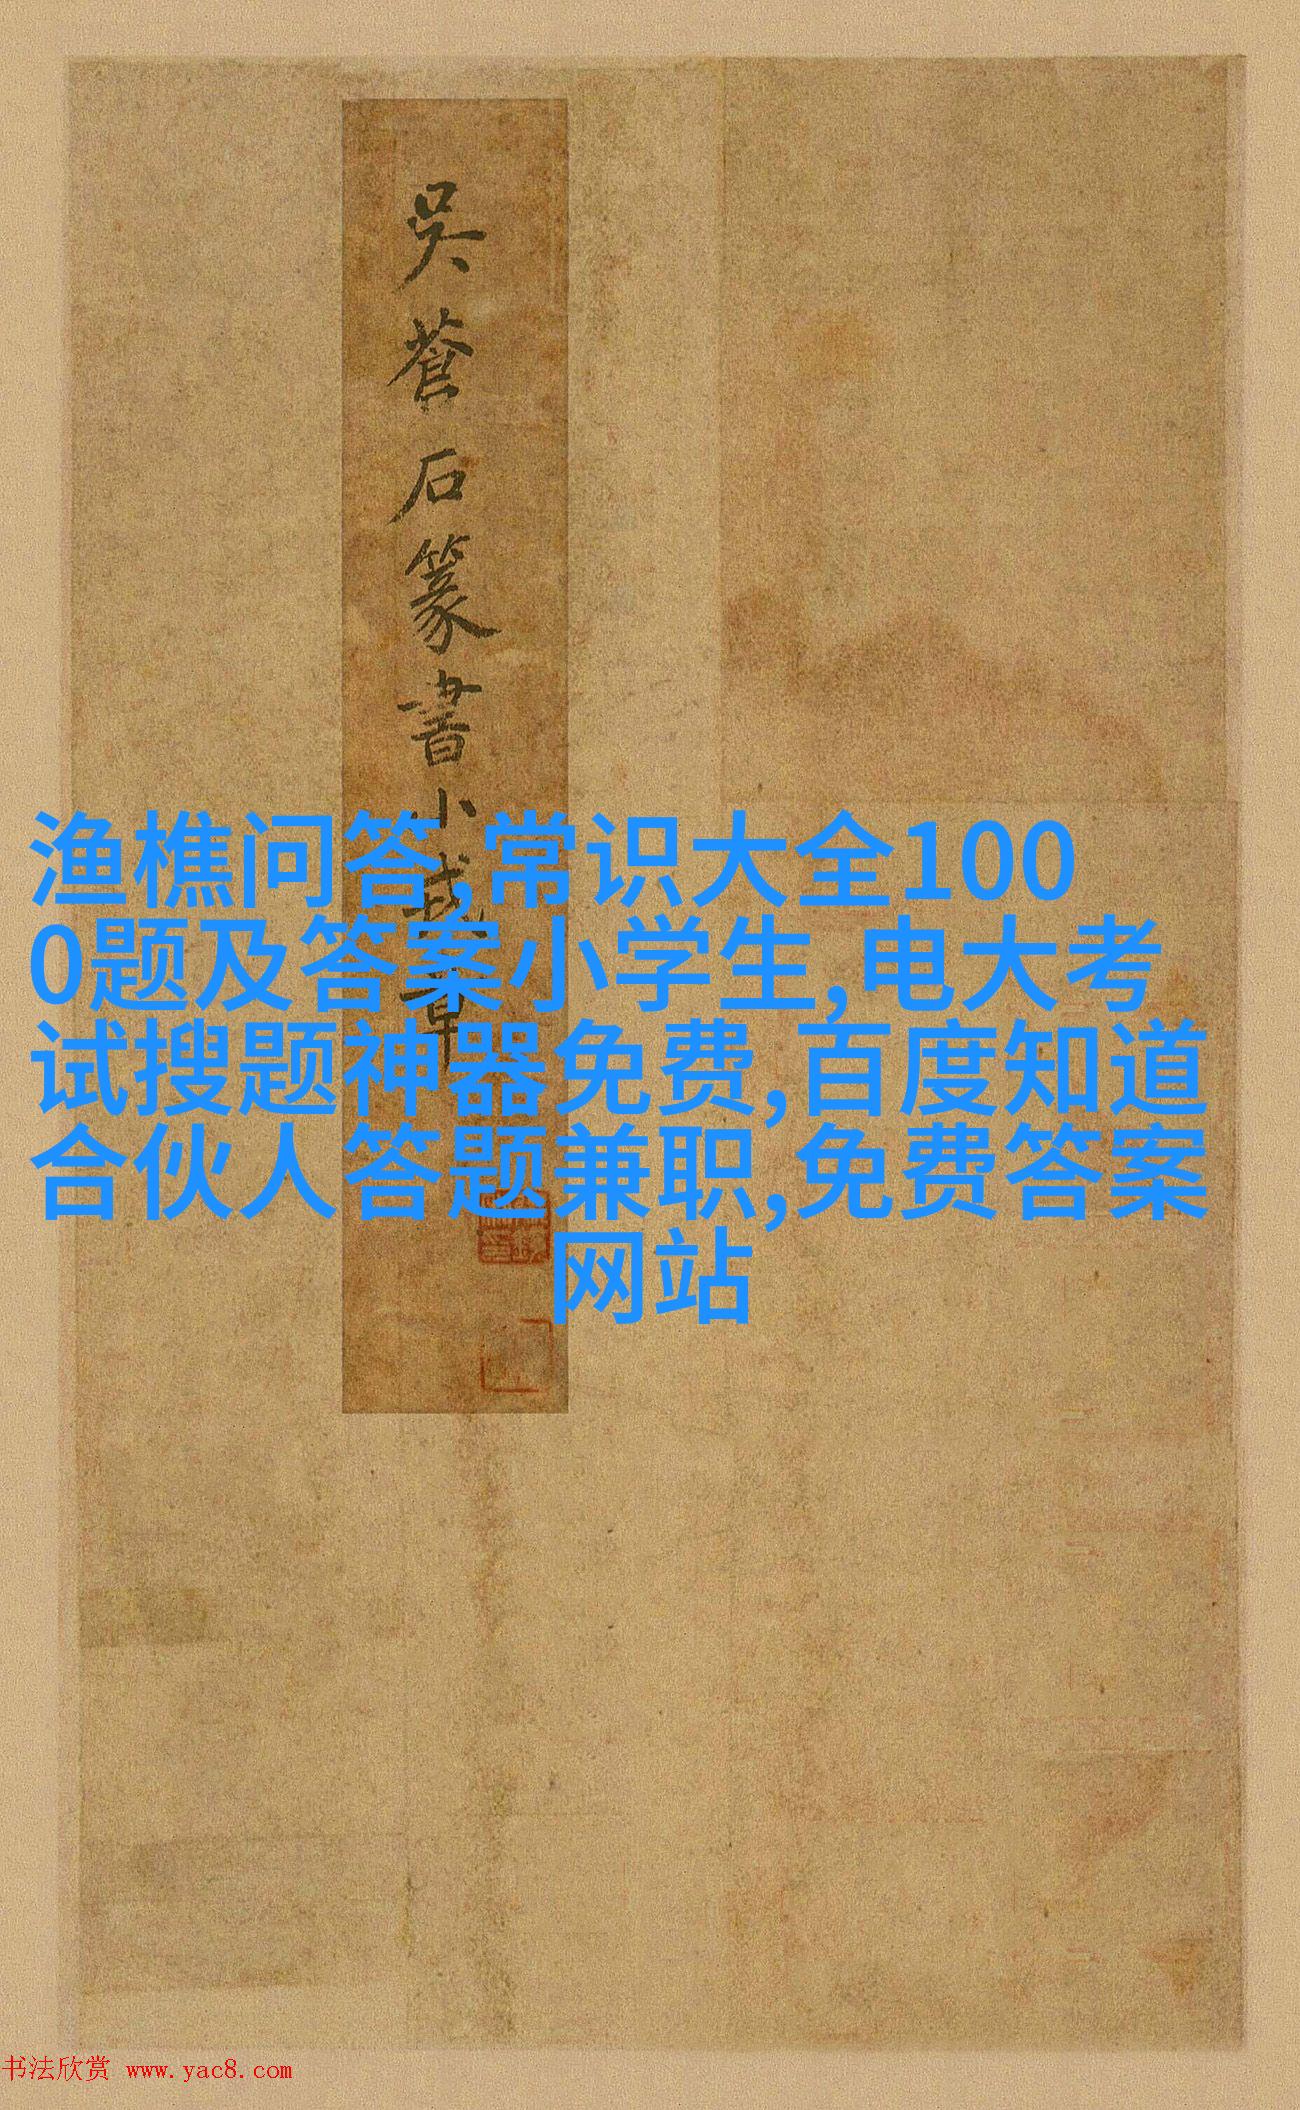 吳蒼石篆書小戏草
渔樵问答,常识大全100
0题及答案小学生,电大考
试搜题神器免费,百度知道
合伙人答题兼职,免费答案
网站
书法欣赏 www.yac8.com